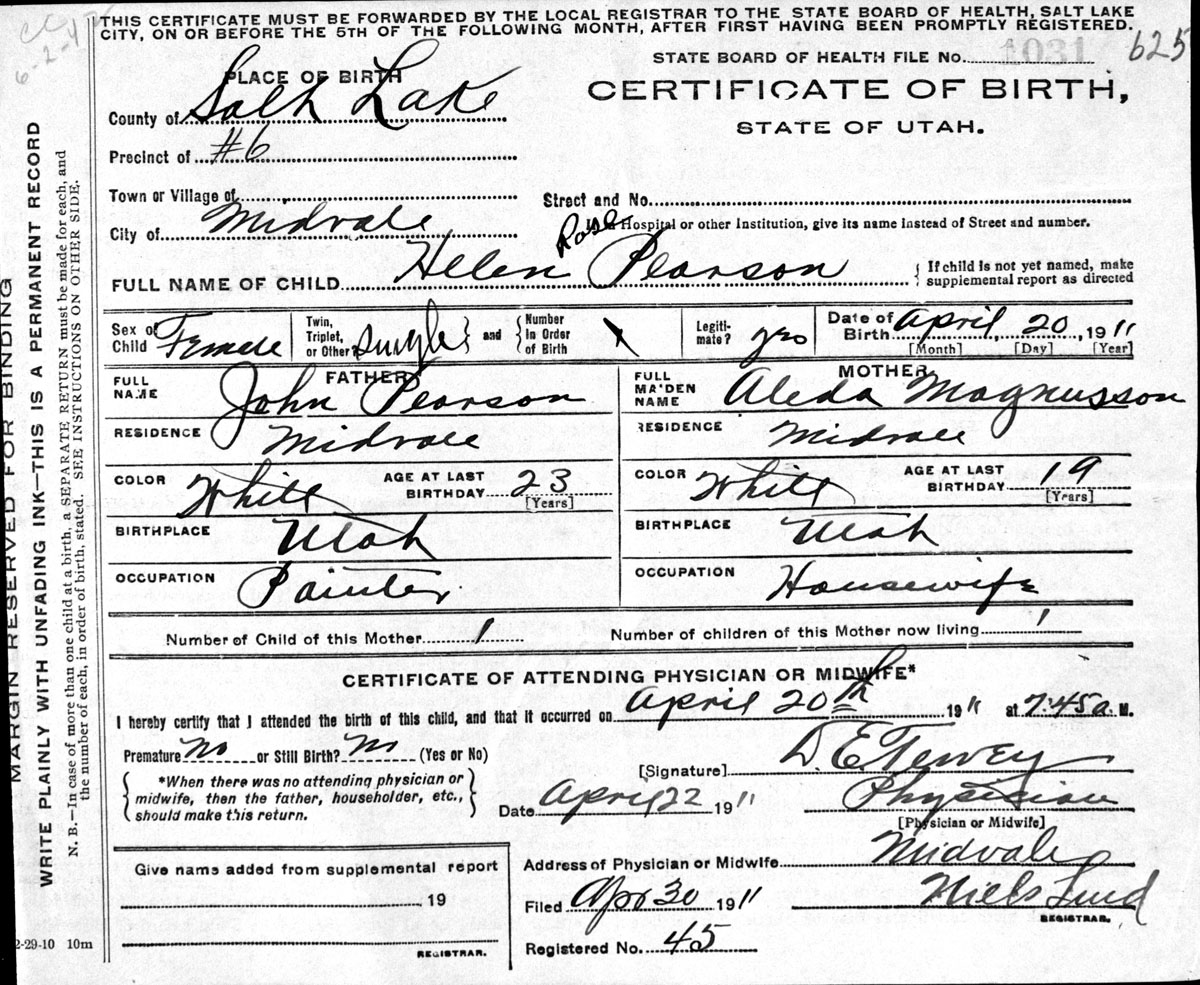 THIS CERTIFICATE MUST BE FORWARDED BY THE LOCAL REGISTRAR TO THE STATE BOARD OF HEALTH, SALT LAKE
CITY, ON OR BEFORE THE 5TH OF THE FOLLOWING MONTH, AFTER FIRST HAVING BEEN PROMPTLY REGISTERED.
6-2-4
STATE BOARD OF HEALTH FILE No. 1031 625
PLACE OF BIRTH
CERTIFICATE OF BIRTH,
STATE OF UTAH.
County of Salt Lake
Precinct of #6
Town or Village of
Street and No.
City of Midvale
Hospital or other Institution, give its name instead of Street and number.
FULL NAME OF CHILD Helen Rose Pearson
{ If child is not yet named, make
supplemental report as directed
Sex of Child Female
Twin, Triplet, or Other? Single } and { Number in Order of Birth 1
Legiti-mate? yes
Date of Birth April 20, 1911
[Month] [Day] [Year]
FATHER
FULL NAME John Pearson
RESIDENCE Midvale
COLOR White AGE AT LAST BIRTHDAY 23
[Years]
BIRTHPLACE Utah
OCCUPATION Painter
MOTHER
FULL MAIDEN NAME Aleda Magnusson
RESIDENCE Midvale
COLOR White AGE AT LAST BIRTHDAY 19
[Years]
BIRTHPLACE Utah
OCCUPATION Housewife
Number of Child of this Mother 1 Number of children of this Mother now living 1
CERTIFICATE OF ATTENDING PHYSICIAN OR MIDWIFE*
I hereby certify that I attended the birth of this child, and that it occurred on April 20th 1911 at 7:45 a. M.
Premature No or Still Birth? No (Yes or No)
{ *When there was no attending physician or
midwife, then the father, householder, etc.,
should make this return. }
[Signature] D. E. Tewey
Date April 22 1911 Physician
[Physician or Midwife]
Address of Physician or Midwife Midvale
Filed Apr 30 1911 Niels Lind
REGISTRAR.
Registered No. 45
Give name added from supplemental report
19
REGISTRAR.
2-29-10 10m
MARGIN RESERVED FOR BINDING
WRITE PLAINLY WITH UNFADING INK—THIS IS A PERMANENT RECORD
N. B.—In case of more than one child at a birth, a SEPARATE RETURN must be made for each, and
the number of each, in order of birth, stated. SEE INSTRUCTIONS ON OTHER SIDE.